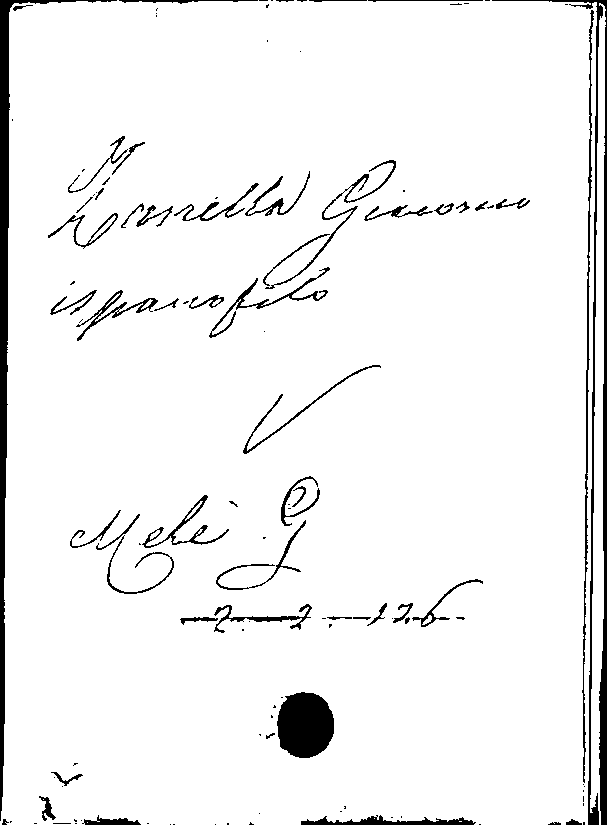 Zanella Giacomo
ispanofilo
V
Melè G
2. 2. 126